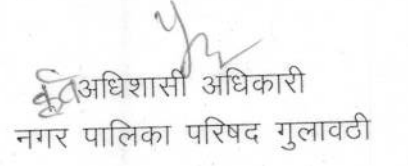 कृते अधिशासी अधिकारी
नगर पालिका परिषद गुलावठी